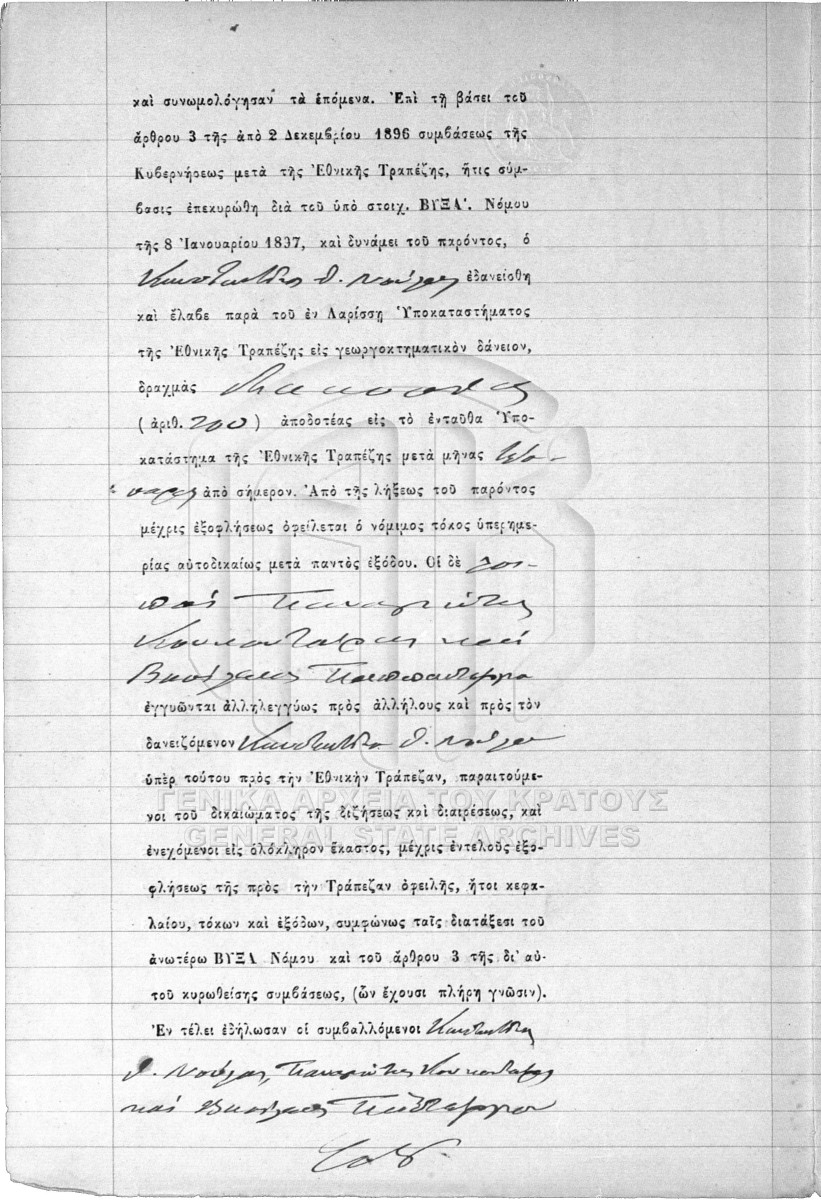 καὶ συνωμολόγησαν τὰ ἑπόμενα. Ἐπὶ τῇ βάσει τοῦ
ἄρθρου 3 τῆς ἀπὸ 2 Δεκεμβρίου 1896 συμβάσεως τῆς
Κυβερνήσεως μετὰ τῆς Ἐθνικῆς Τραπέζης, ἥτις σύμ-
βασις ἐπεκυρώθη διὰ τοῦ ὑπὸ στοιχ. ΒΥΞΑ'. Νόμου
τῆς 8 Ἰανουαρίου 1897, καὶ δυνάμει τοῦ παρόντος, ὁ
ἐδανείσθη
καὶ ἔλαβε παρὰ τοῦ ἐν Λαρίσσῃ Ὑποκαταστήματος
τῆς Ἐθνικῆς Τραπέζης εἰς γεωργοκτηματικὸν δάνειον,
δραχμὰς διακοσίας
(ἀριθ. 200) ἀποδοτέας εἰς τὸ ἐνταῦθα Ὑπο-
κατάστημα τῆς Ἐθνικῆς Τραπέζης μετὰ μῆνας
ἀπὸ σήμερον. Ἀπὸ τῆς λήξεως τοῦ παρόντος
μέχρις ἐξοφλήσεως ὀφείλεται ὁ νόμιμος τόκος ὑπερημε-
ρίας αὐτοδικαίως μετὰ παντὸς ἐξόδου. Οἱ δὲ λοι-
ποὶ Παναγιώτης
καὶ
Βασίλειος
ἐγγυῶνται ἀλληλεγγύως πρὸς ἀλλήλους καὶ πρὸς τὸν
δανειζόμενον
ὑπὲρ τούτου πρὸς τὴν Ἐθνικὴν Τράπεζαν, παραιτούμε-
νοι τοῦ δικαιώματος τῆς διζήσεως καὶ διαιρέσεως, καὶ
ΓΕΝΙΚΑ ΑΡΧΕΙΑ ΤΟΥ ΚΡΑΤΟΥΣ
GENERAL STATE ARCHIVES
ἐνεχόμενοι εἰς ὁλόκληρον ἕκαστος, μέχρις ἐντελοῦς ἐξο-
φλήσεως τῆς πρὸς τὴν Τράπεζαν ὀφειλῆς, ἤτοι κεφα-
λαίου, τόκων καὶ ἐξόδων, συμφώνως ταῖς διατάξεσι τοῦ
ἀνωτέρω ΒΥΞΑ Νόμου καὶ τοῦ ἄρθρου 3 τῆς δι' αὐ-
τοῦ κυρωθείσης συμβάσεως, (ὧν ἔχουσι πλήρη γνῶσιν).
Ἐν τέλει ἐδήλωσαν οἱ συμβαλλόμενοι
Παναγιώτης
καὶ Βασίλειος